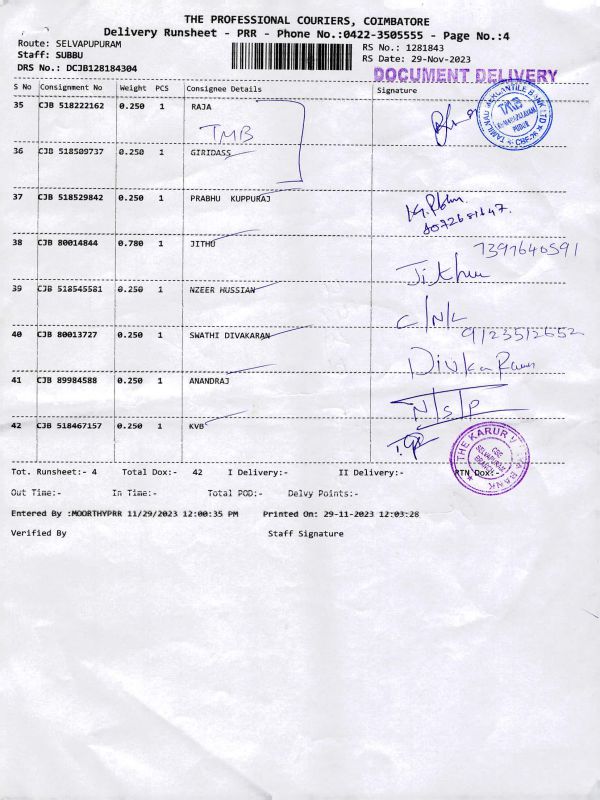 THE PROFESSIONAL COURIERS, COIMBATORE
Delivery Runsheet - PRR - Phone No.:0422-3505555 - Page No.:4
Route: SELVAPUPURAM
RS No.: 1281843
Staff: SUBBU
RS Date: 29-Nov-2023
DRS No.: DCJB128184304
DOCUMENT DELIVERY
S No Consignment No Weight PCS Consignee Details Signature
35 CJB 518222162 0.250 1 RAJA
TMB
36 CJB 518509737 0.250 1 GIRIDASS
37 CJB 518529842 0.250 1 PRABHU KUPPURAJ
38 CJB 80014844 0.780 1 JITHU 7397640591
Jithu
39 CJB 518545581 0.250 1 NZEER HUSSIAN
C/N/L
40 CJB 80013727 0.250 1 SWATHI DIVAKARAN 9123512652
41 CJB 89984588 0.250 1 ANANDRAJ
N/S/P
42 CJB 518467157 0.250 1 KVB
THE KARUR
BANK
Tot. Runsheet:- 4 Total Dox:- 42 I Delivery:- II Delivery:- RTN Dox:-
Out Time:- In Time:- Total POD:- Delvy Points:-
Entered By :MOORTHYPRR 11/29/2023 12:00:35 PM Printed On: 29-11-2023 12:03:28
Verified By Staff Signature